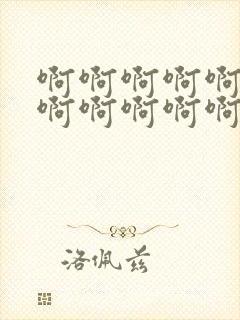 啊啊啊啊啊
啊啊啊啊啊
洛佩兹